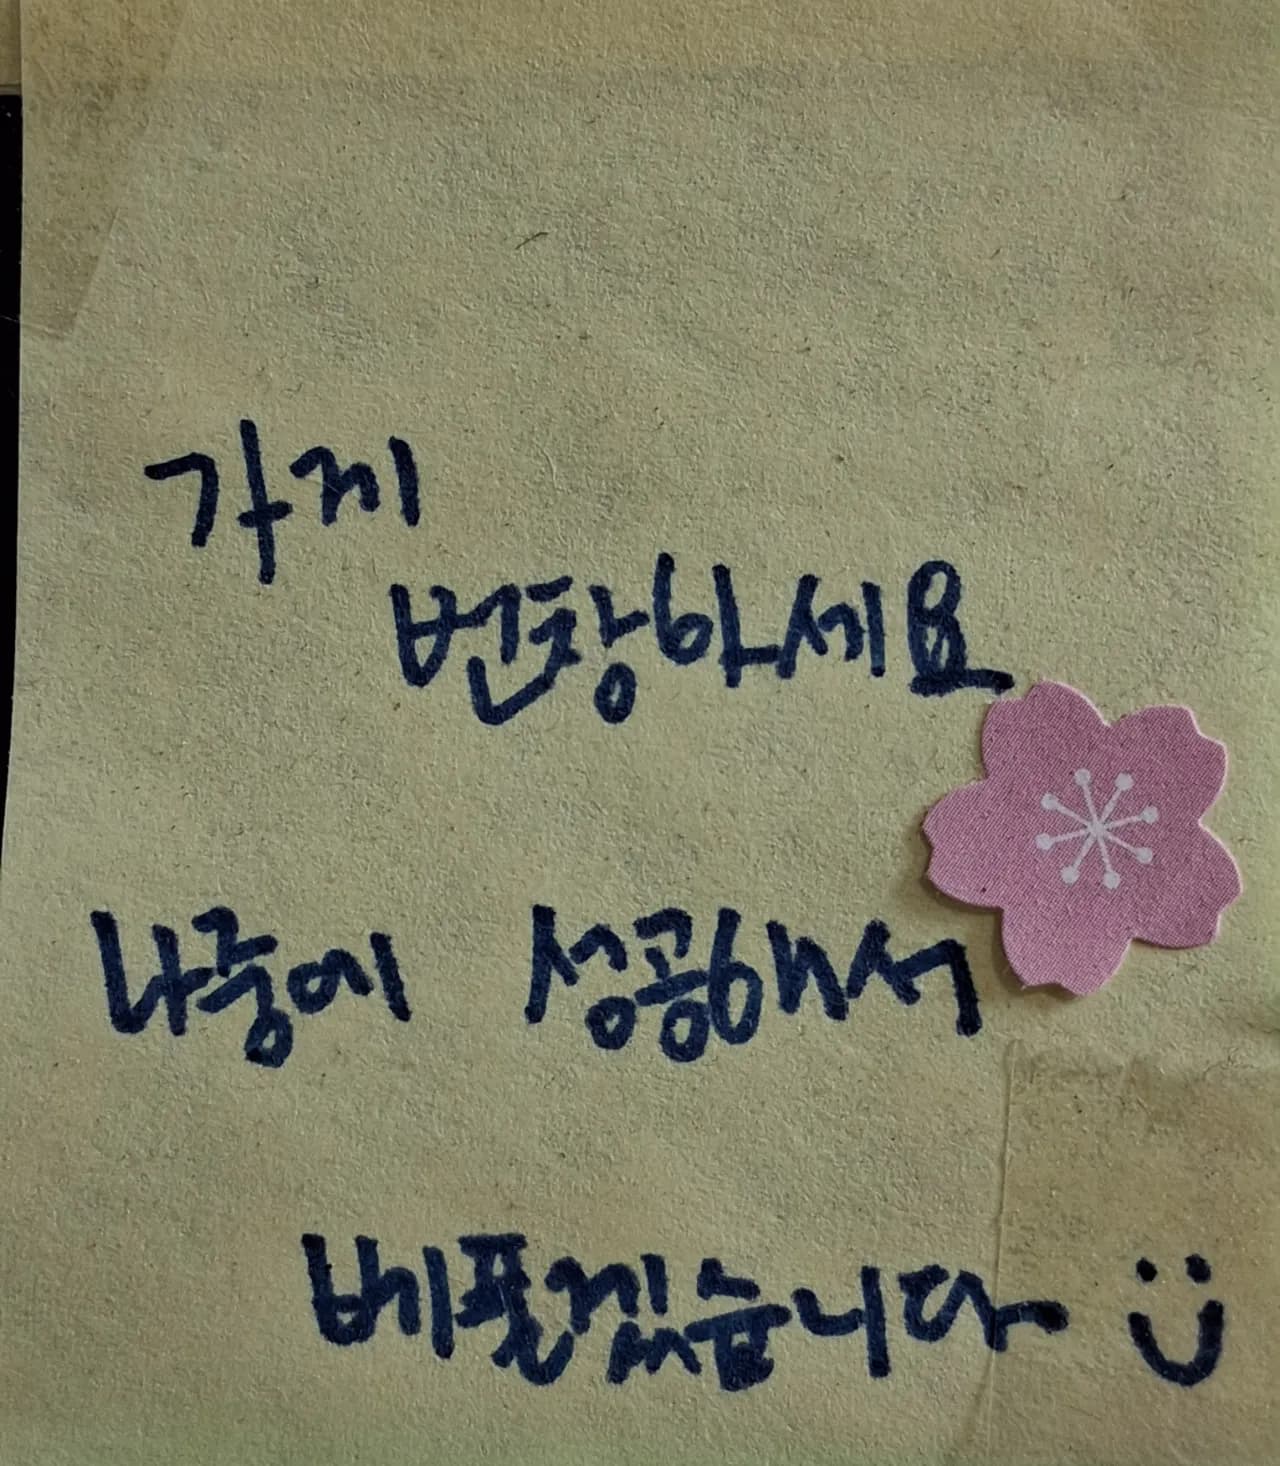 가게
번창하세요
나중에 성공해서
베풀겠습니다